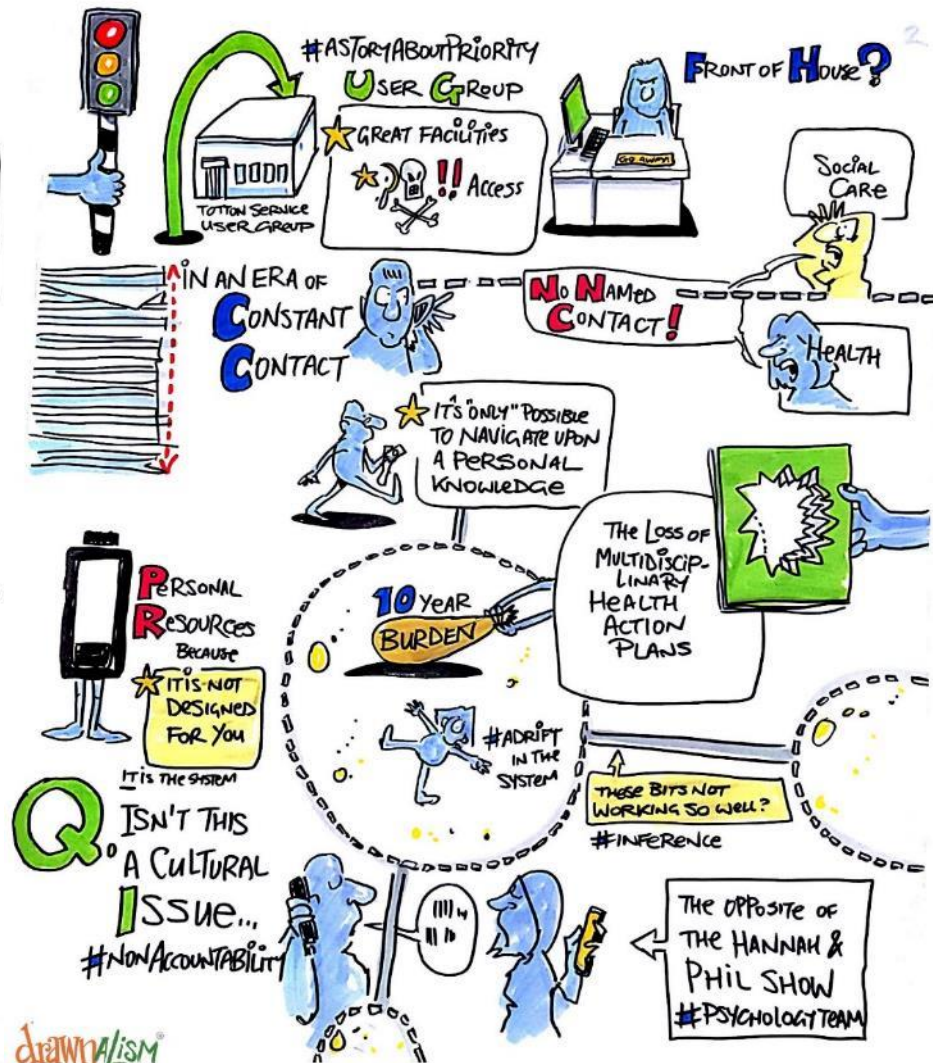 2
#ASTORYABOUTPRIORITY
USER GROUP
GREAT FACILITIES
!! ACCESS
TOTTON SERVICE
USER GROUP
GO AWAY!
FRONT OF HOUSE?
SOCIAL
CARE
IN AN ERA OF
CONSTANT
CONTACT
NO NAMED
CONTACT!
HEALTH
IT'S "ONLY" POSSIBLE
TO NAVIGATE UPON
A PERSONAL
KNOWLEDGE
THE LOSS OF
MULTIDISCIP-
LINARY
HEALTH
ACTION
PLANS
10 YEAR
BURDEN
PERSONAL
RESOURCES
BECAUSE
IT IS NOT
DESIGNED
FOR YOU
IT IS THE SYSTEM
#ADRIFT
IN THE
SYSTEM
THESE BITS NOT
WORKING SO WELL?
#INFERENCE
Q. ISN'T THIS
A CULTURAL
ISSUE...
#NONACCOUNTABILITY
THE OPPOSITE OF
THE HANNAH &
PHIL SHOW
#PSYCHOLOGYTEAM
drawnalism